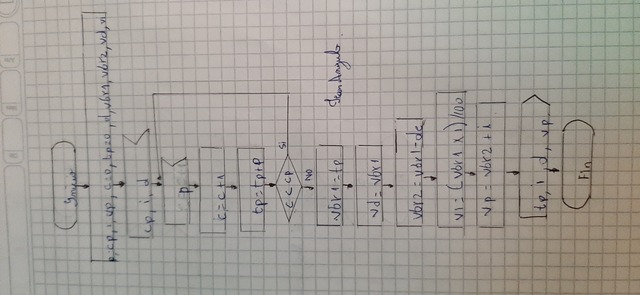 Inicio
p, cp, i, vp, c=0, tp=0, d, vbr1, vbr2, vd, vi
cp, i, d
p
c = c+1
tp = tp+p
c < cp
Si
No
vbr1 = tp
vd = vbr1
vbr2 = vbr1-de
vi = (vbr1 x i)/100
vp = vbr2 + i
tp, i, d, vp.
Fin